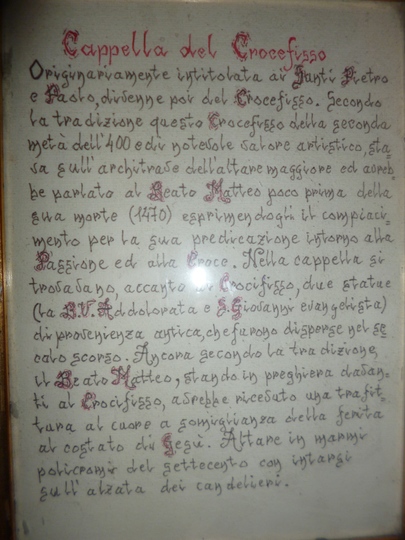 Cappella del Crocefisso
Originariamente intitolata ai Santi Pietro
e Paolo, divenne poi del Crocefisso. Secondo
la tradizione questo Crocefisso della seconda
metà dell'400 e di notevole valore artistico, sta-
va sull'architrave dell'altare maggiore ed avreb-
be parlato al Beato Matteo poco prima della
sua morte (1470) esprimendogli il compiaci-
mento per la sua predicazione intorno alla
Passione ed alla Croce. Nella cappella si
trovavano, accanto al Crocifisso, due statue
(la B.V. Addolorata e S. Giovanni evangelista)
di provenienza antica, che furono disperse nel se-
colo scorso. Ancora secondo la tradizione,
il Beato Matteo, stando in preghiera davan-
ti al Crocifisso, avrebbe ricevuto una trafit-
tura al cuore a somiglianza della ferita
al costato di Gesù. Altare in marmi
policromi del settecento con intarsi
sull'alzata dei candelieri.